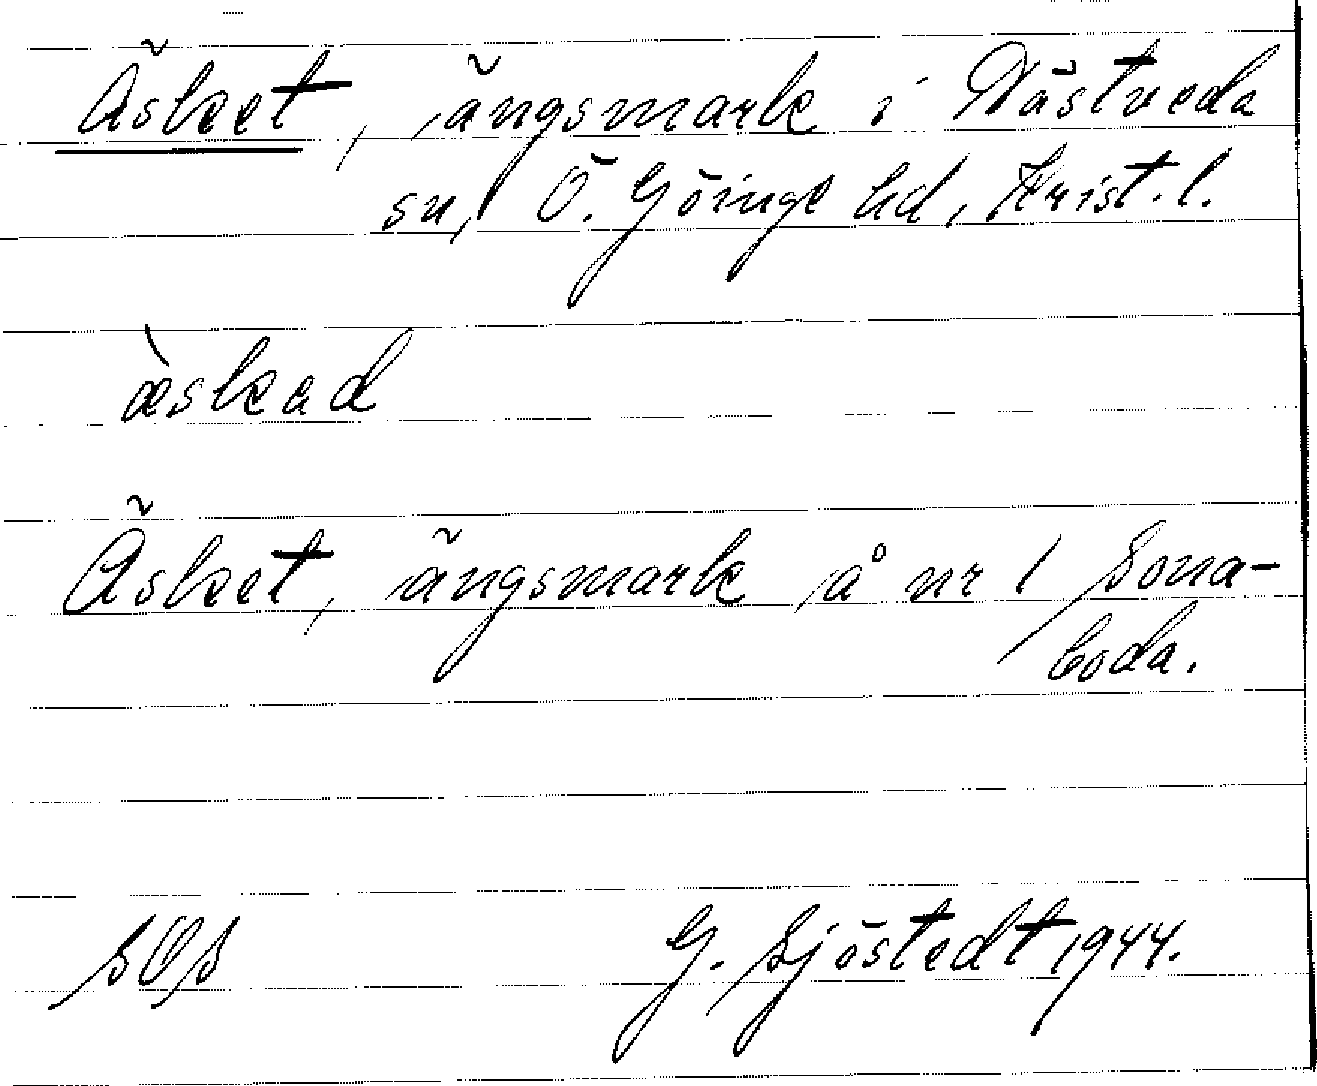 Äsket, ängsmark i Nästveda
sn, Ö. Göinge hd, Krist. l.
æ̀skad
Äsket, ängsmark å nr 1 Sona-
boda.
SOS G. Sjöstedt 1944.